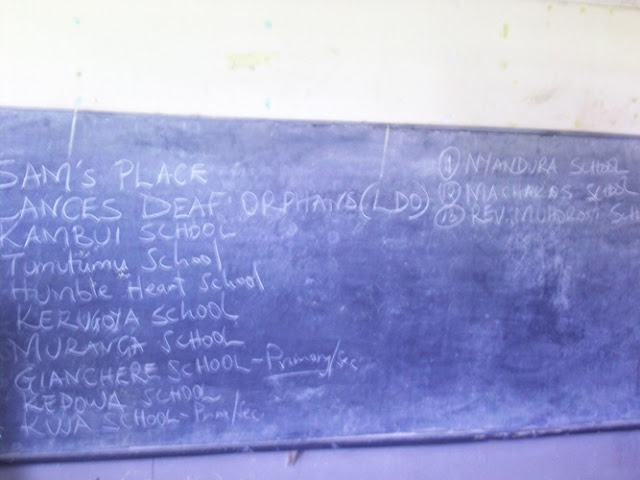 SAM'S PLACE
LANCES DEAF ORPHANS (LDO)
KAMBUI SCHOOL
Tumutumu School
Humble Heart School
KERUGOYA SCHOOL
MURANGA SCHOOL
GIANCHERE SCHOOL - Primary/sec
KEDOWA SCHOOL
KWA SCHOOL - Prim/sec
NYANDURA SCHOOL
MACHAKOS SCHOOL
REV. MUHOROSI SCH